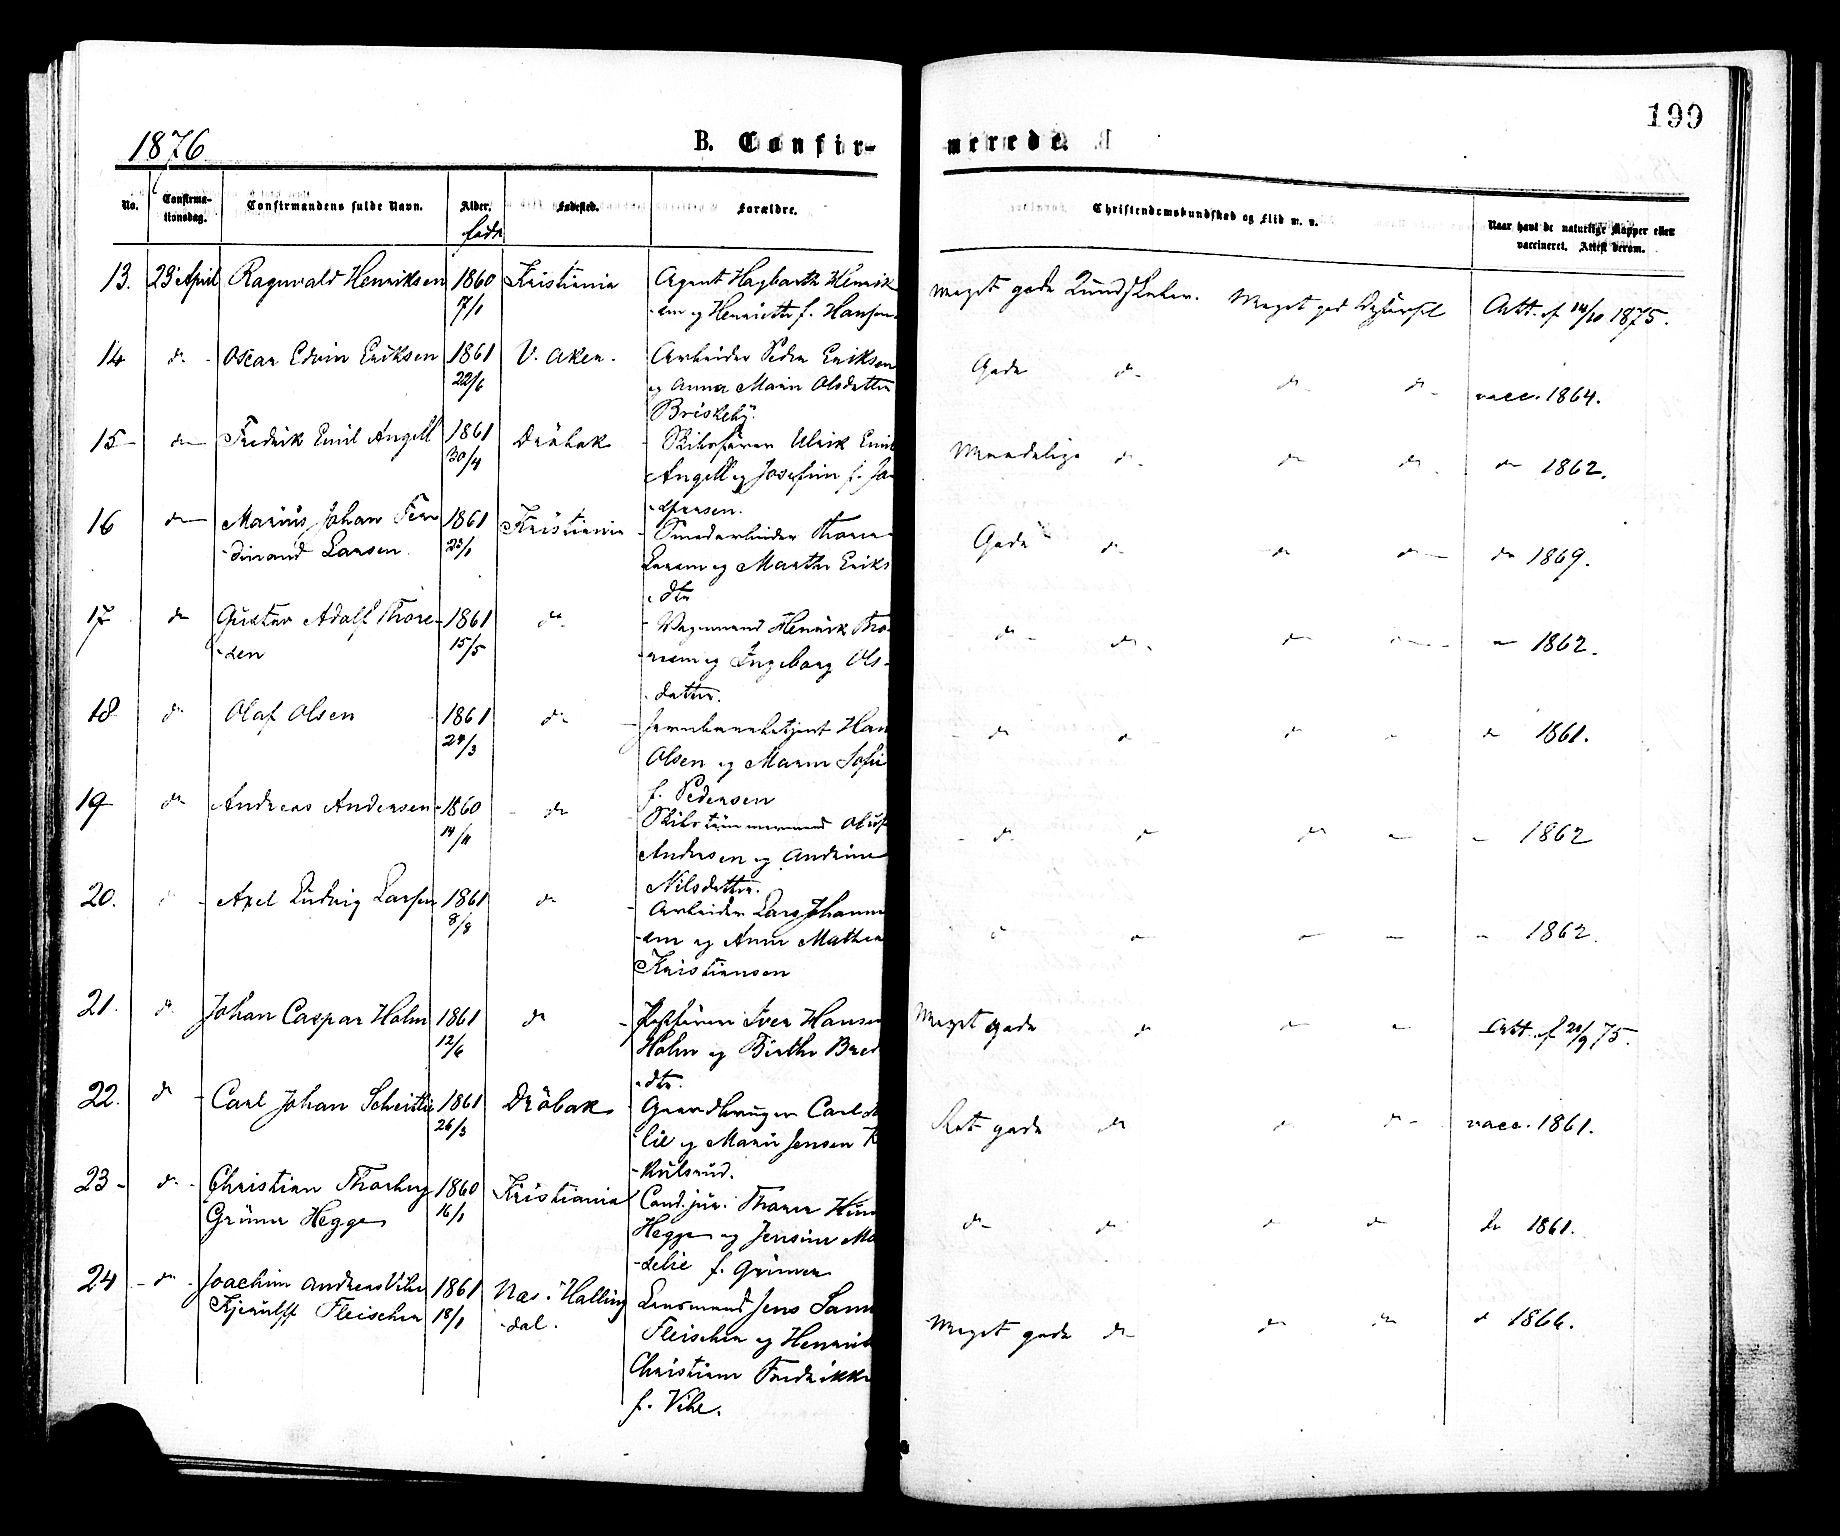 199
1876
B. Confir-
merede.
No.
Confirma-
tionsdag.
Confirmandens fulde Navn.
Alder.
født
Fødested.
Forældre.
Christendomskundskab og Flid m. v.
Naar havt de naturlige Kopper eller
vaccineret. Attest derom.
13. 23 April Ragnvald Henriksen 1860 Kristiania Agent Hagbarth Henrik
7/1 -sen og Henriette f. Hansen
Meget gode Kundskaber. Meget god Opførsel Att. af 14/10 1875.
14 do - Oscar Edvin Eriksen 1861 V. Aker. Arbeider Peder Eriksen
22/6 og Anna Marie Olsdatter
Briskeby.
Gode do - do do - vacc. 1864.
15 - do Fredrik Emil Angell 1861 Dröbak Skibsfører Ulrik Emil
30/4 Angell og Josefine f. Ja-
Maadelige do - do do - do 1862.
16 do Marius Johan Fer 1861 Kristiania Smedarbeider Thore
-dinand Larsen. 23/1 Larsen og Marthe Eriks
-dtr
Gode do do do do 1869.
17 do Gustav Adolf Thore- 1861 do Henrik Tho-
-sen 15/5 og Ingeborg Ols-
-datter.
do - do - do - 1862.
18 do Olaf Olsen 1861 do Jernbanebetjent Han
24/3 Olsen og Maren Sofie
f. Pedersen
do do do - do 1861.
19 do Andreas Andersen 1860 - do Skibstømmermand Oluf
14/11 Andersen og Andrine
Nilsdatter.
- do do do - - 1862
20. do - Axel Ludvig Larsen 1861 do Arbeider Lars Johann
8/8 -sen og Anne Mathea
Kristiansen
- - - - 1862.
21. do Johan Caspar Holm 1861 do Iver Hansen
12/6 Holm og Birthe Bred
-dtr.
Meget gode do do - Att. af 20/9 75.
22. do - Carl Johan Scheitlie 1861 Dröbak Gaardbruger Carl
26/3 lie og Marie Jensen
-Kulsrud.
Ret gode do do do - vacc. 1861.
23 - do - Christian Thorberg 1860 Kristiania Cand. jur. Thorer
Grüner Hegge 16/1 Hegge og Jensine Ma
f. Grüner
do - do do do do 1861.
24 - do - Joachim Andreas Vibe 1861 Næs i Halling Lensmand Jens Sam
Kjerulff Fleischer 18/1 -dal. Fleischer og Henriette
Christiane Fredrikke
f. Vibe.
Meget gode do do do do 1866.